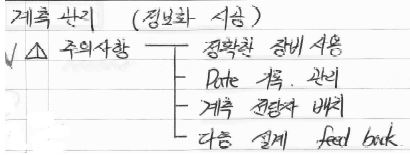 계측관리 (정보화 시공)
√ ⚠ 주의사항 정확한 장비 사용
Date 기록. 관리
계측 전담자 배치
다음 설계 feed back